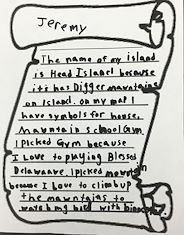 Jeremy
The name of my island
is Head Island because
it has Digger mawntains
on Island. on my map I
have symbols for house,
Mawntain school Gym.
I Picked Gym because
I Love to playing Blessed
Delawaave. I picked mowntain
because I Love to climb up
the mawntajas to
watch my bird with